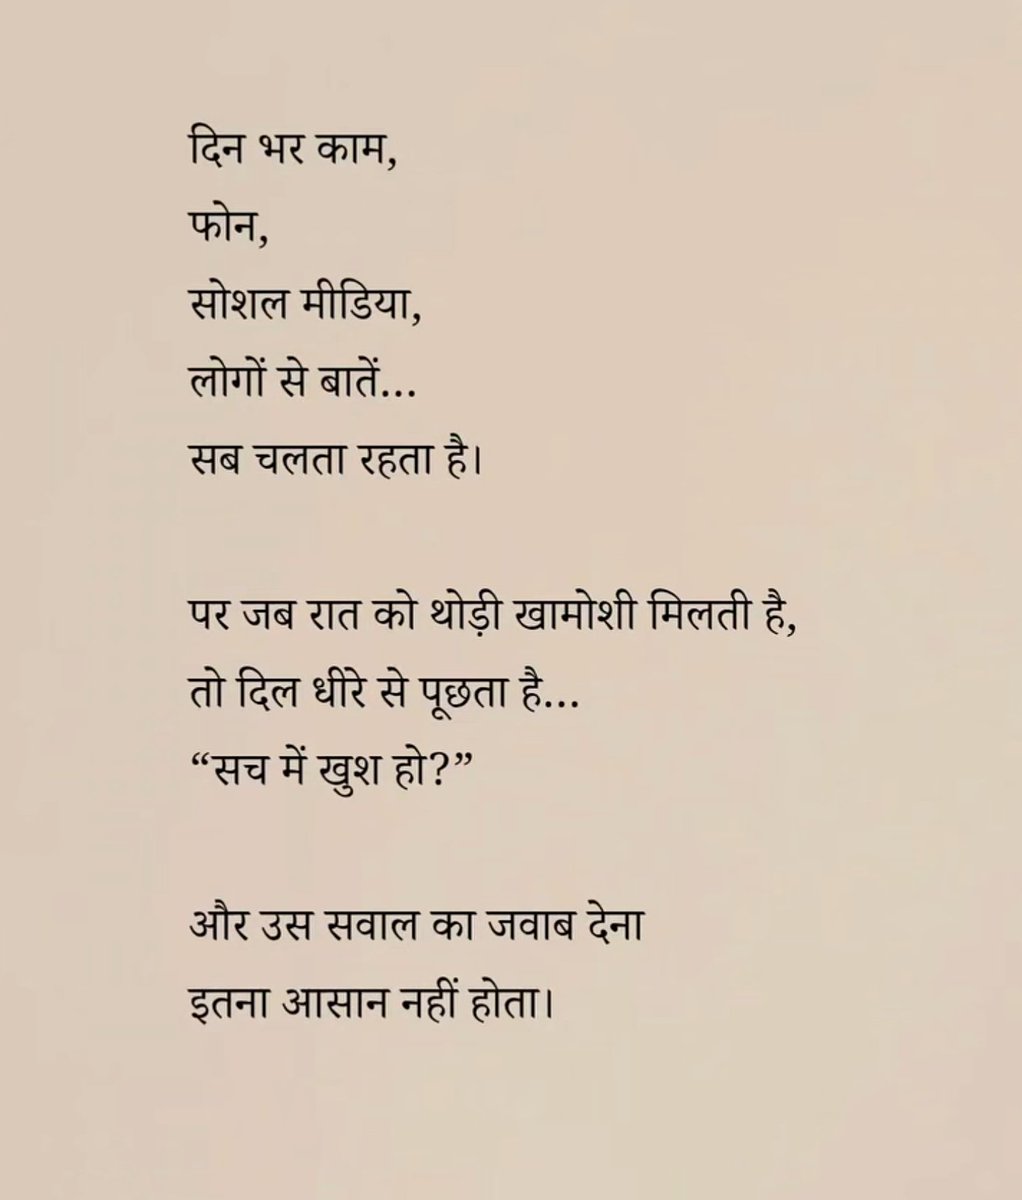 दिन भर काम,
फोन,
सोशल मीडिया,
लोगों से बातें...
सब चलता रहता है।
पर जब रात को थोड़ी खामोशी मिलती है,
तो दिल धीरे से पूछता है...
“सच में खुश हो?”
और उस सवाल का जवाब देना
इतना आसान नहीं होता।